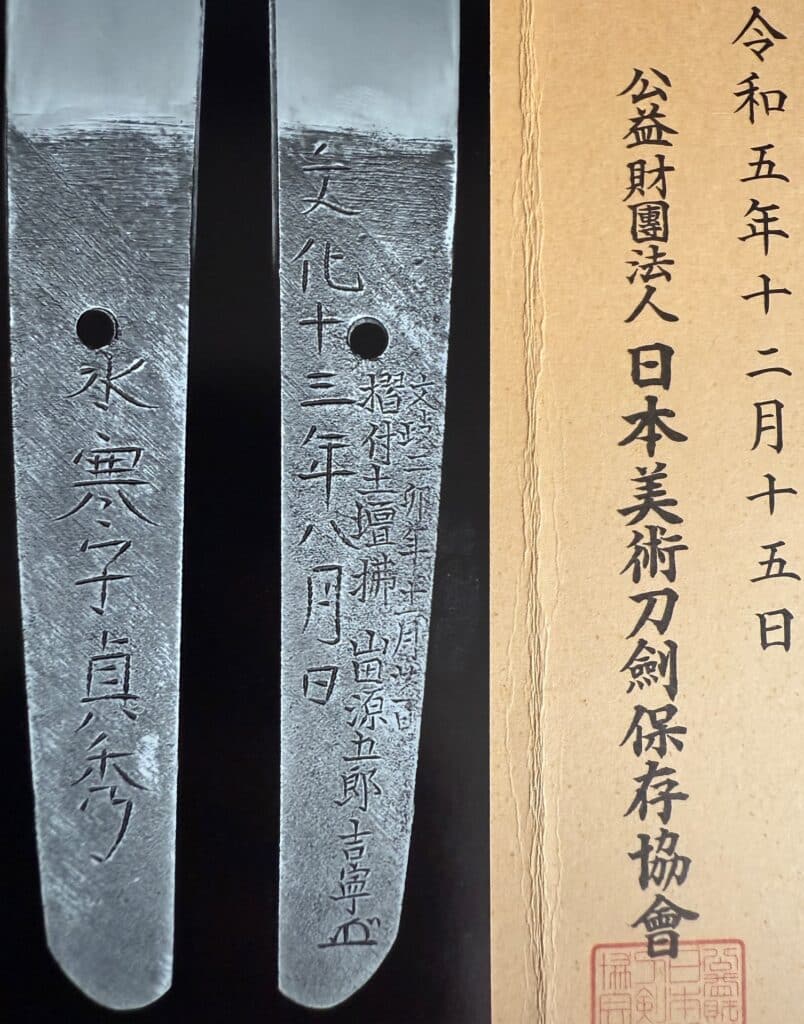 令和五年十二月十五日
公益財團法人日本美術刀劍保存協會
文政二卯年十一月廿一日
摺付土壇拂 山田源五郎吉寧
文化十三年八月日
水寒子貞秀